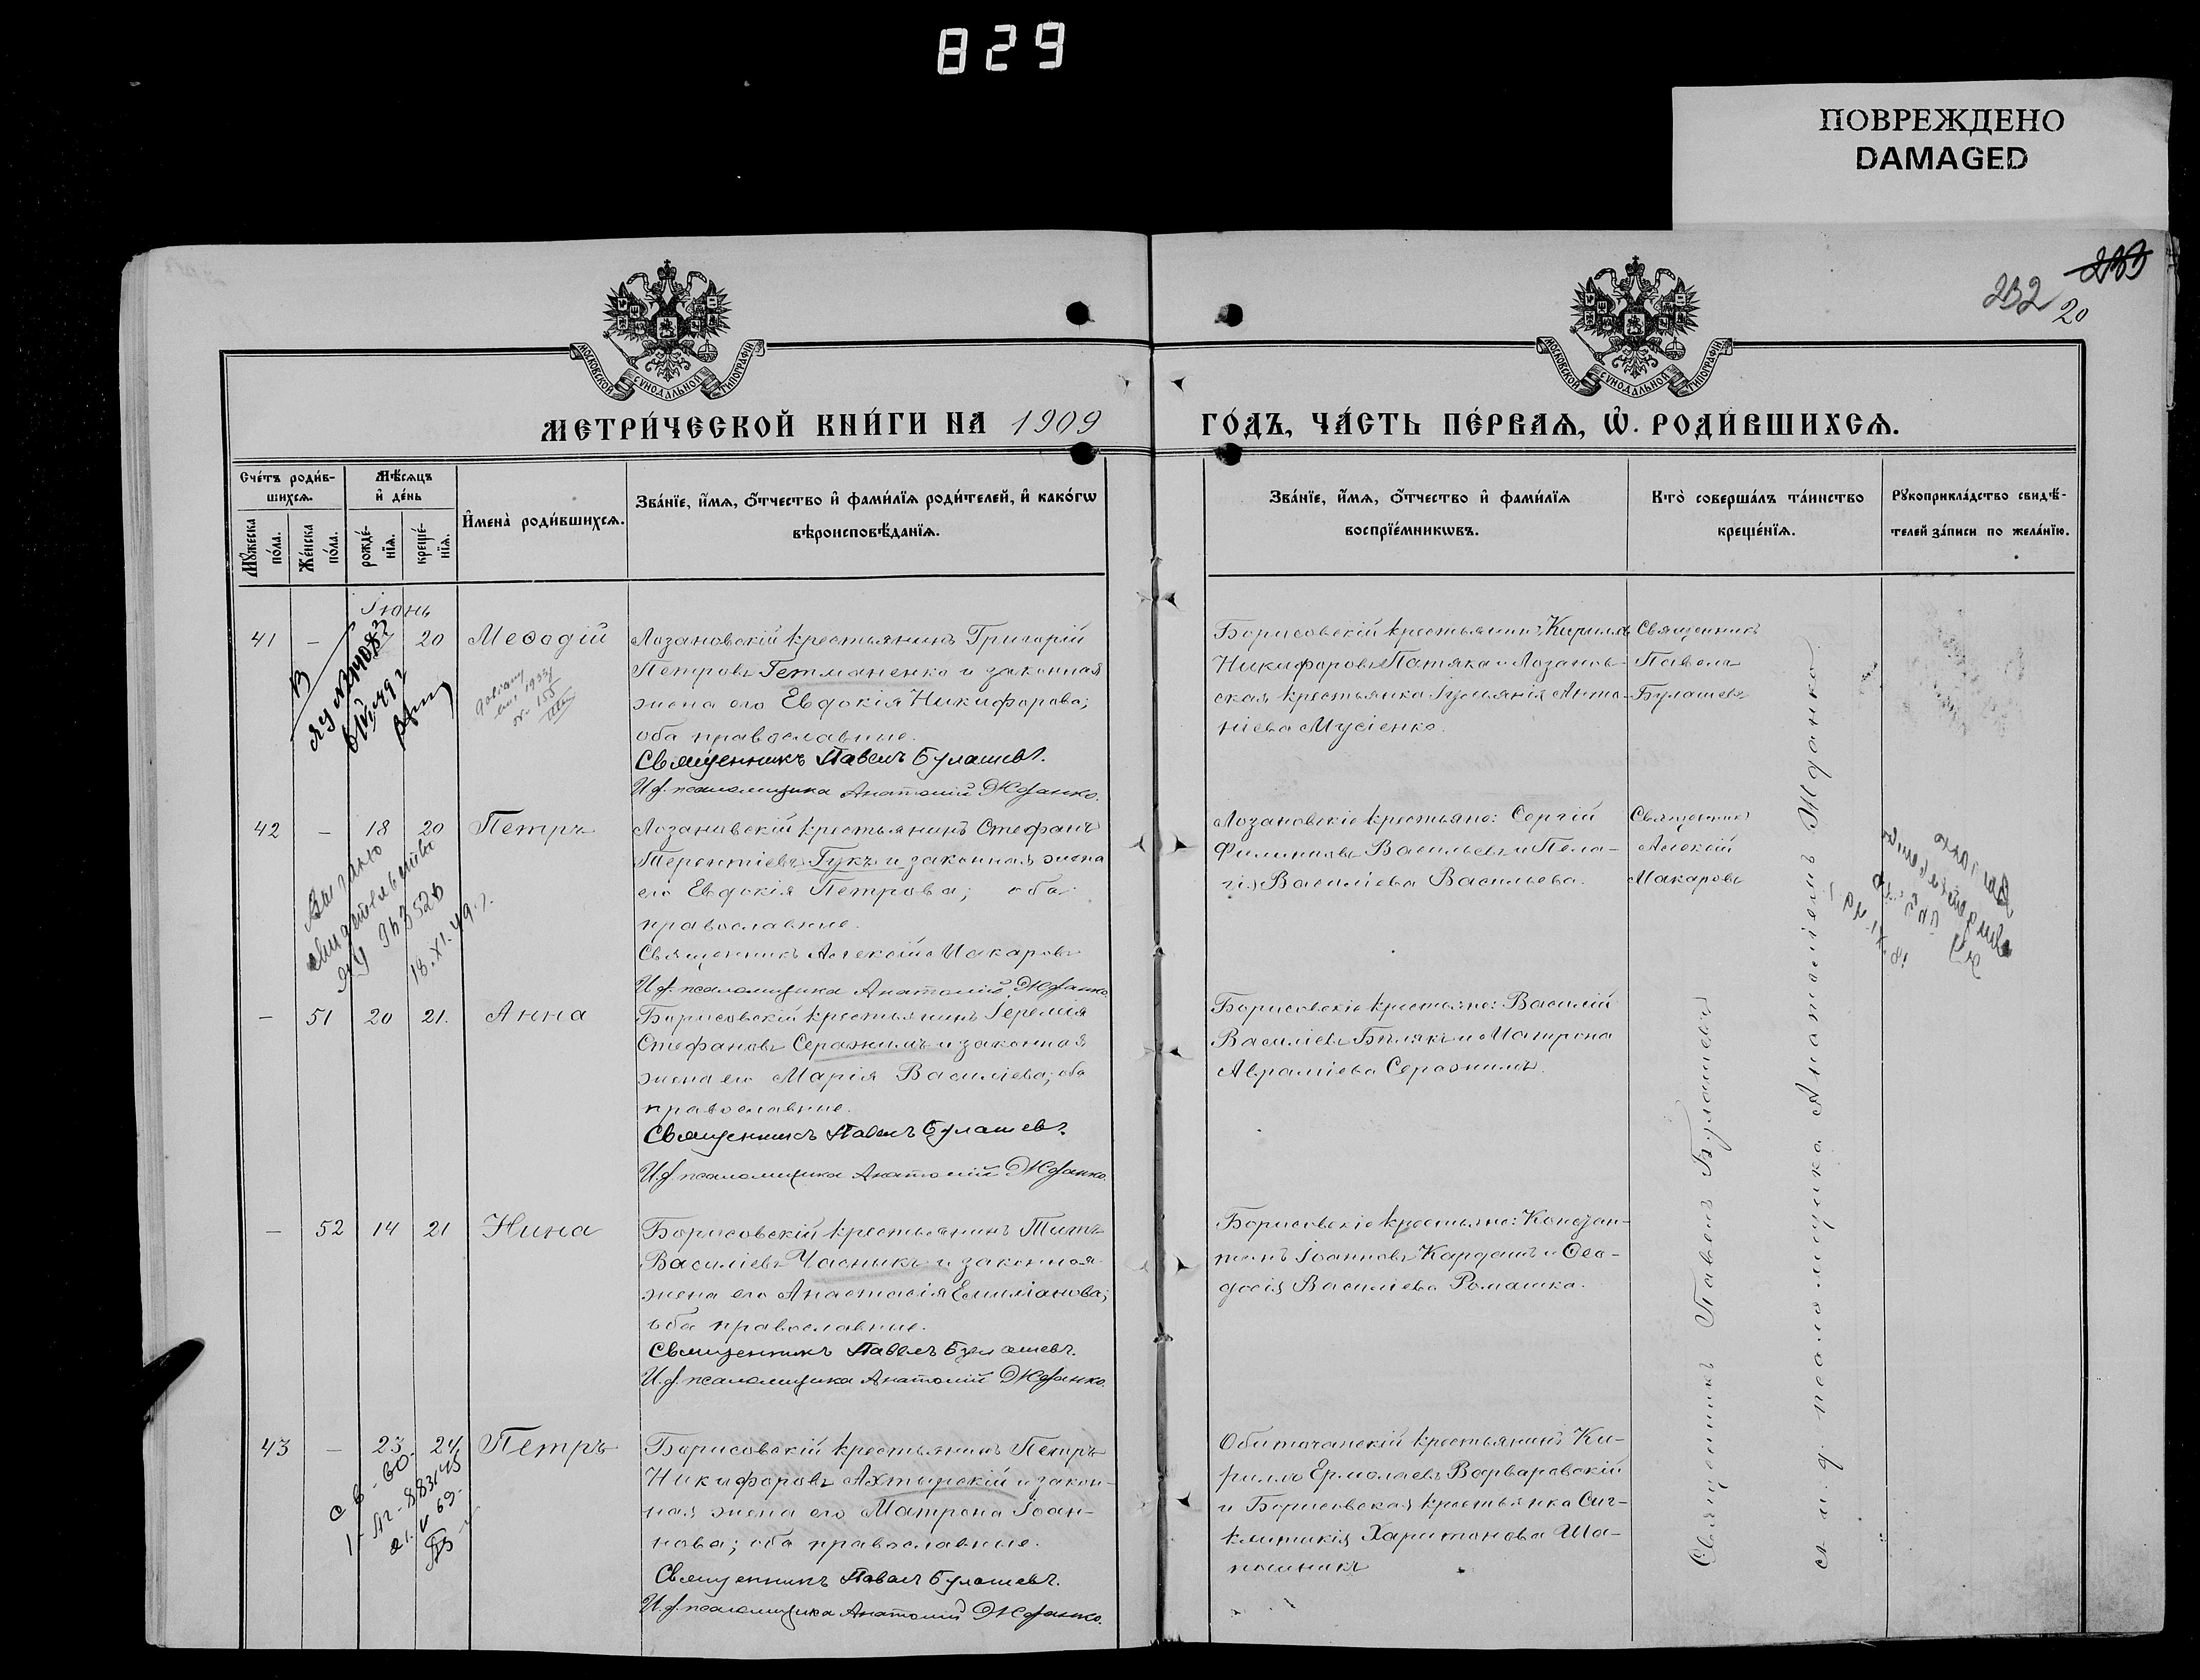 829
ПОВРЕЖДЕНО
DAMAGED
232
20
МОСКОВСКОЙ СѴНОДАЛЬНОЙ ТИПОГРАФІИ
МОСКОВСКОЙ СѴНОДАЛЬНОЙ ТИПОГРАФІИ
МЕТРИ́ЧЕСКОЙ КНИ́ГИ НА 1909
ГО́ДЪ, ЧА́СТЬ ПЕ́РВАѦ, Ѽ. РОДИ́ВШИХСѦ.
Сче́тъ роди́в-
шихсѧ.
Мѣ́сѧцъ
и҆ де́нь
Мꙋ́жеска
по́ла.
Же́нска
по́ла.
рожде́-
нїѧ.
креще́-
нїѧ.
И҆мена̀ роди́вшихсѧ.
Зва́нїе, и҆́мѧ, ѻ҆́тчество и҆ фами́лїѧ роди́телей, и҆ како́гѡ
вѣроисповѣ́данїѧ.
Зва́нїе, и҆́мѧ, ѻ҆́тчество и҆ фами́лїѧ
воспрїе́мникѡвъ.
Кто̀ соверша́лъ та́инство
креще́нїѧ.
Рꙋкоприкла́дство свидѣ́-
телей за́писи по жела́нїю.
Іюнь
41 — 20 Меѳодій
Лозановскій крестьянинъ Григорій
Петровъ Гетманенко и законная
жена его Евдокія Никифорова;
оба православные.
Священникъ Павелъ Булашевъ.
И.д. псаломщика Анатолій Жданко.
Борисовскій крестьянинъ Кириллъ
Никифоровъ Патяка и Лозанов-
ская крестьянка Іуліанія Анто-
ніева Мусіенко.
Священникъ
Павелъ
Булашевъ
42 — 18 20 Петръ
Выдано
свидетельство
18.XI.49 г.
Лозановскій крестьянинъ Стефанъ
Терентіевъ Гукъ и законная жена
его Евдокія Петрова; оба
православные.
Священникъ Алексій Макаровъ
И.д. псаломщика Анатолій Жданко
Лозановскіе крестьяне: Сергій
Филипповъ Васильевъ и Пела-
гія Василіева Васильева.
Священникъ
Алексій
Макаровъ
— 51 20 21. Анна
Борисовскій крестьянинъ Іеремія
Стефановъ Серажимъ и законная
жена его Марія Василіева; оба
православные.
Священникъ Павелъ Булашевъ.
И.д. псаломщика Анатолій Жданко.
Борисовскіе крестьяне: Василій
Василіевъ Бѣлякъ и Матрона
Авраміева Серажимъ.
— 52 14 21 Нина
Борисовскій крестьянинъ Титъ
Василіевъ Часникъ и законная
жена его Анастасія Емиліанова;
оба православные.
Священникъ Павелъ Булашевъ.
И.д. псаломщика Анатолій Жданко.
Борисовскіе крестьяне: Констан-
тинъ Іоанновъ Кардашъ и Ѳео-
досія Василіева Ромашка.
43 — 23 24 Петръ
Борисовскій крестьянинъ Петръ
Никифоровъ Ахтырскій и закон-
ная жена его Матрона Іоан-
нова; оба православные.
Священникъ Павелъ Булашевъ.
И.д. псаломщика Анатолій Жданко.
Обиточанскій крестьянинъ Ки-
риллъ Ермолаевъ Варваровскій
и Борисовская крестьянка Син-
клитикія Харитонова Ша-
пошникъ
Священникъ Павелъ Булашевъ
и. д. псаломщика Анатолій Жданко